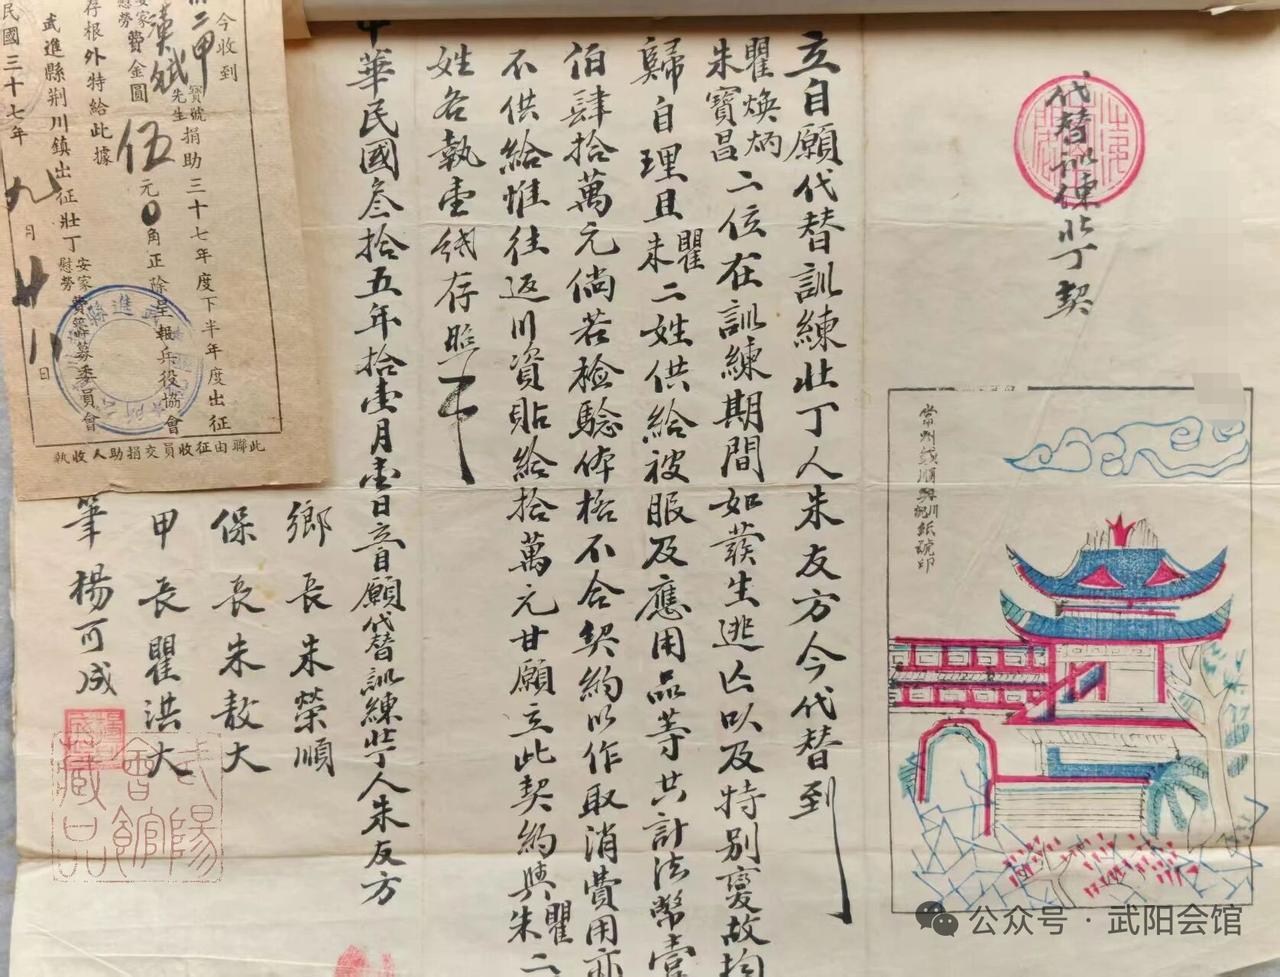 代替訓練壯丁契
常州
順興
紙號印
立自願代替訓練壯丁人朱友方今代替到
瞿煥炳
朱寶昌
二位在訓練期間如發生逃亡以及特別變故均
歸自理且
瞿
朱
二姓供給被服及應用品等共計法幣壹
佰肆拾萬元倘若檢驗体格不合契約以作取消費用亦
不供給惟往返川資貼給拾萬元甘願立此契約與
瞿
朱
二
姓各執壹紙存照
中華民國叁拾五年拾壹月壹日立自願代替訓練壯丁人朱友方
鄉長朱榮順
保長朱教大
甲長瞿洪大
筆楊可成
今收到
二甲
寶號
先生
捐助三十七年度下半年度出征
安家
慰勞
費金圓伍元0角正除呈報兵役協會
存根外特給此據
武進縣荆川鎮出征壯丁
安家
慰勞
費籌募委員會
民國三十七年九月廿八日
此聯由征收員交捐助人收執
武陽會館藏品
公众号·武阳会馆